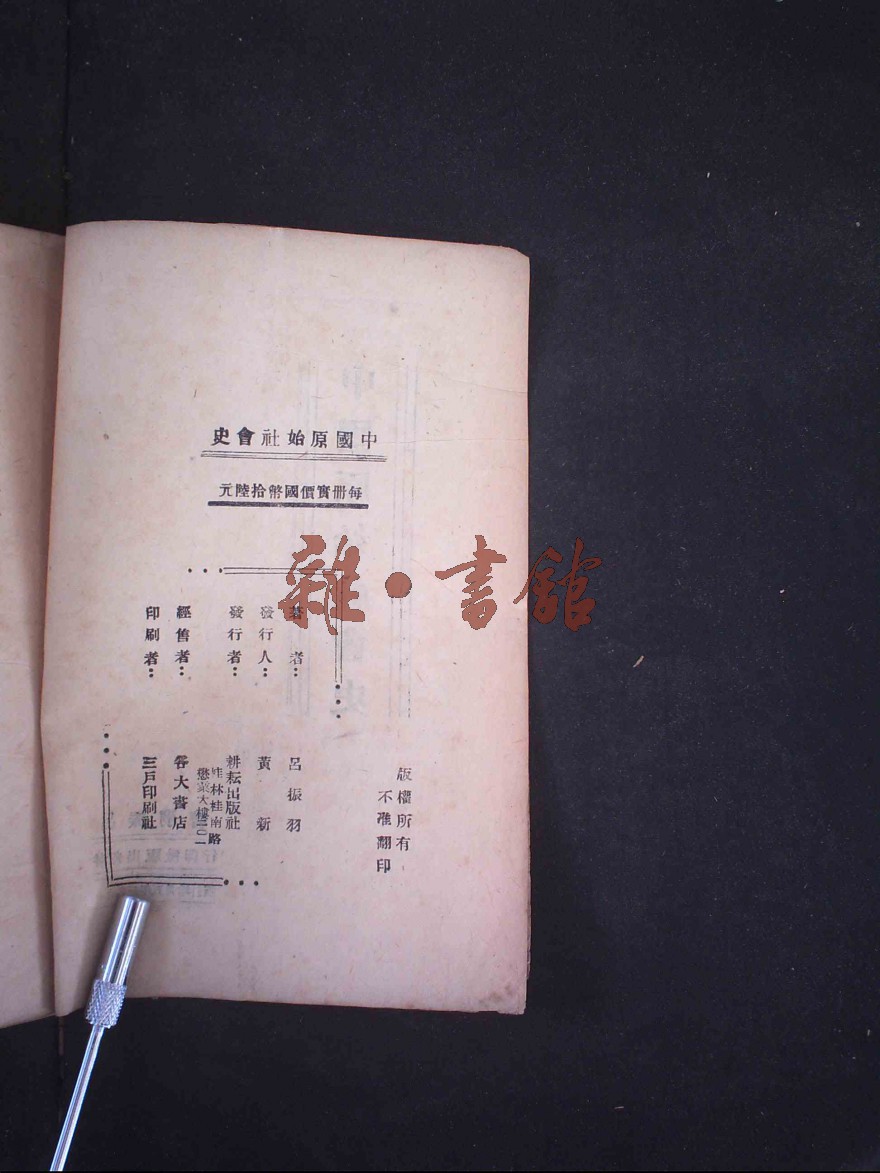 中國原始社會史
每册實價國幣拾陸元
雜·書館
著者：呂振羽
發行人：黃新
發行者：耕耘出版社
桂林桂南路
懋業大樓二〇二
經售者：各大書店
印刷者：三戶印刷社
版權所有
不准翻印